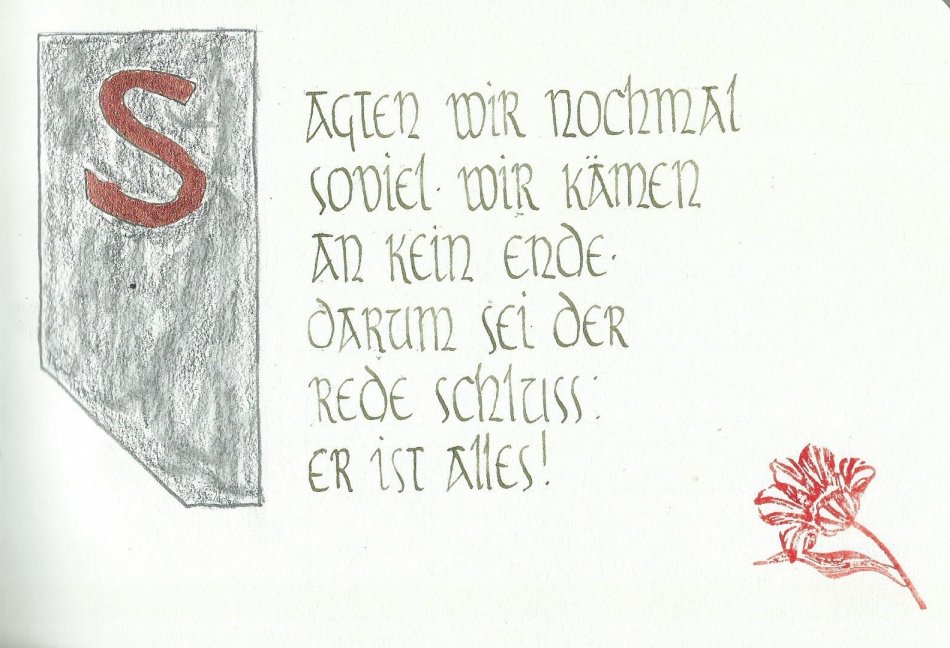 SAGTEN WIR NOCHMAL
SOVIEL· WIR KÄMEN
AN KEIN ENDE·
DARUM SEI DER
REDE SCHLUSS:
ER IST ALLES!